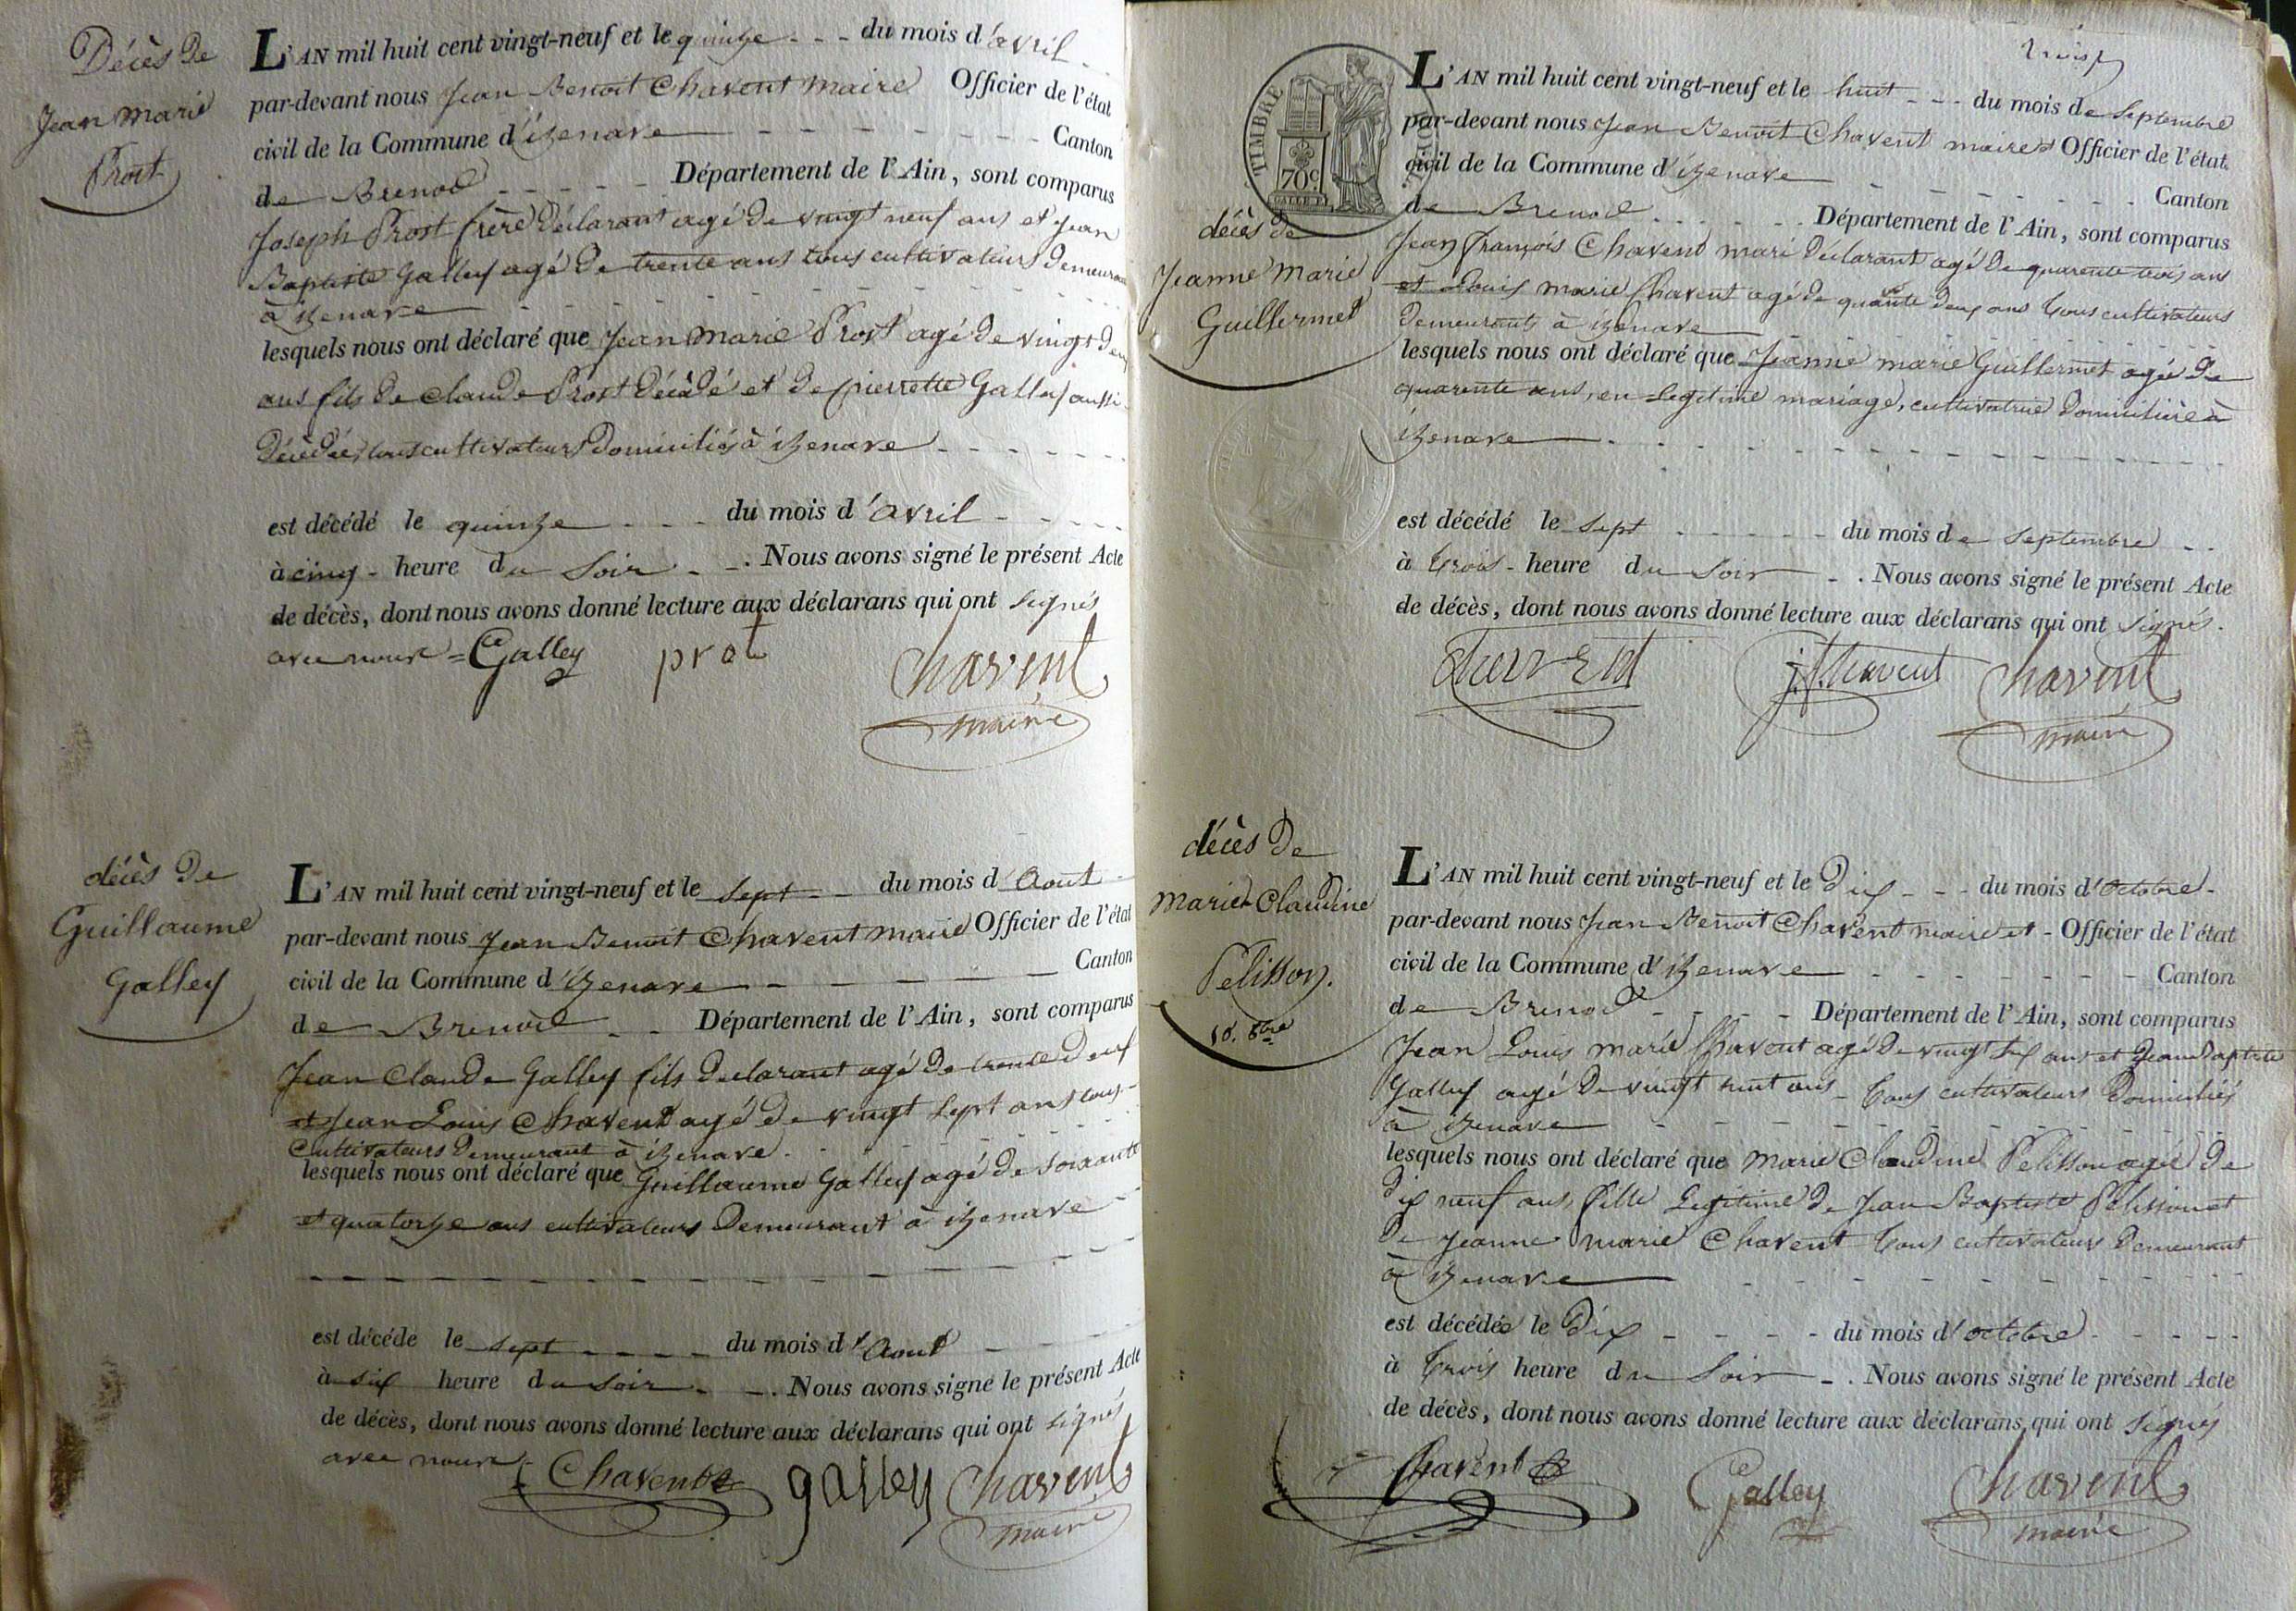 Décès de
Jean Marie
Prost
L'AN mil huit cent vingt-neuf et le quinze - - - du mois d'avril
par-devant nous Jean Benoit Chavent maire Officier de l'état
civil de la Commune d'izenave Canton
de Brenod Département de l'Ain, sont comparus
Joseph Prost frère Déclarant agé de vingt neuf ans et Jean
Baptiste Galley agé de trente ans tous cultivateurs demeurant
à izenave
lesquels nous ont déclaré que Jean Marie Prost agé de vingt deux
ans fils de claude Prost Décédé et de pierrette Galley aussi
Décédée, tous cultivateurs Domiciliés à izenave
est décédé le quinze du mois d'avril
à cinq - heure du Soir - . Nous avons signé le présent Acte
de décès, dont nous avons donné lecture aux déclarans qui ont signés
avec nous = Galley prot Chavent
maire
décès de
Guillaume
Galley
L'AN mil huit cent vingt-neuf et le sept du mois d Aout
par-devant nous Jean Benoit Chavent maire Officier de l'état
civil de la Commune d'izenave Canton
de Brenod Département de l'Ain, sont comparus
Jean Claude Galley fils declarant agé de trente deux
et Jean Louis Chavent agé de vingt sept ans tous
Cultivateurs Demeurant à izenave.
lesquels nous ont déclaré que Guillaume Galley agé de soixante
et quatorze ans cultivateurs Demeurant à izenave
est décéde le sept du mois d'Aout
à six heure du soir - . Nous avons signé le présent Acte
de décès, dont nous avons donné lecture aux déclarans qui ont signés
avec nous Chavent galley Chavent
maire
TIMBRE
70c
L'AN mil huit cent vingt-neuf et le huit - - - du mois de Septembre
par-devant nous Jean Benoit Chavent maire Officier de l'état
civil de la Commune d'izenave Canton
de Brenod Département de l'Ain, sont comparus
décès de
Jeanne Marie
Guillermet
Jean françois Chavent mari Déclarant agé de quarente trois ans
et Louis marie Chavent agé de quarante deux ans tous cultivateurs
Demeurants à izenave
lesquels nous ont déclaré que Jeanne marie Guillermet agée de
quarente ans, en Legitime mariage, cultivatrice Domiciliére à
izenave
est décédé le sept du mois de Septembre
à trois - heure du Soir - . Nous avons signé le présent Acte
de décès, dont nous avons donné lecture aux déclarans qui ont signés.
chavent j.f. chavent Chavent
maire
décès de
marie Claudine
Pelisson.
10. 8bre
L'AN mil huit cent vingt-neuf et le Dix - - - du mois d'Octobre -
par-devant nous Jean Benoit Chavent maire et - Officier de l'état
civil de la Commune d'izenave Canton
de Brenod Département de l'Ain, sont comparus
Jean Louis marie Chavent agé de vingt six ans et Jean Baptiste
Galley agé de vingt huit ans - tous cultivateurs Domiciliés
à izenave
lesquels nous ont déclaré que Marie Claudine Pelisson agée de
dix neuf ans, fille Legitime de Jean Baptiste Pelisson et
de Jeanne marie Chavent tous cultivateurs Demeurant
à izenave
est décédée le Dix du mois d'octobre
à trois heure du Soir - . Nous avons signé le présent Acte
de décès, dont nous avons donné lecture aux déclarans, qui ont signés
Chavent Galley Chavent
maire